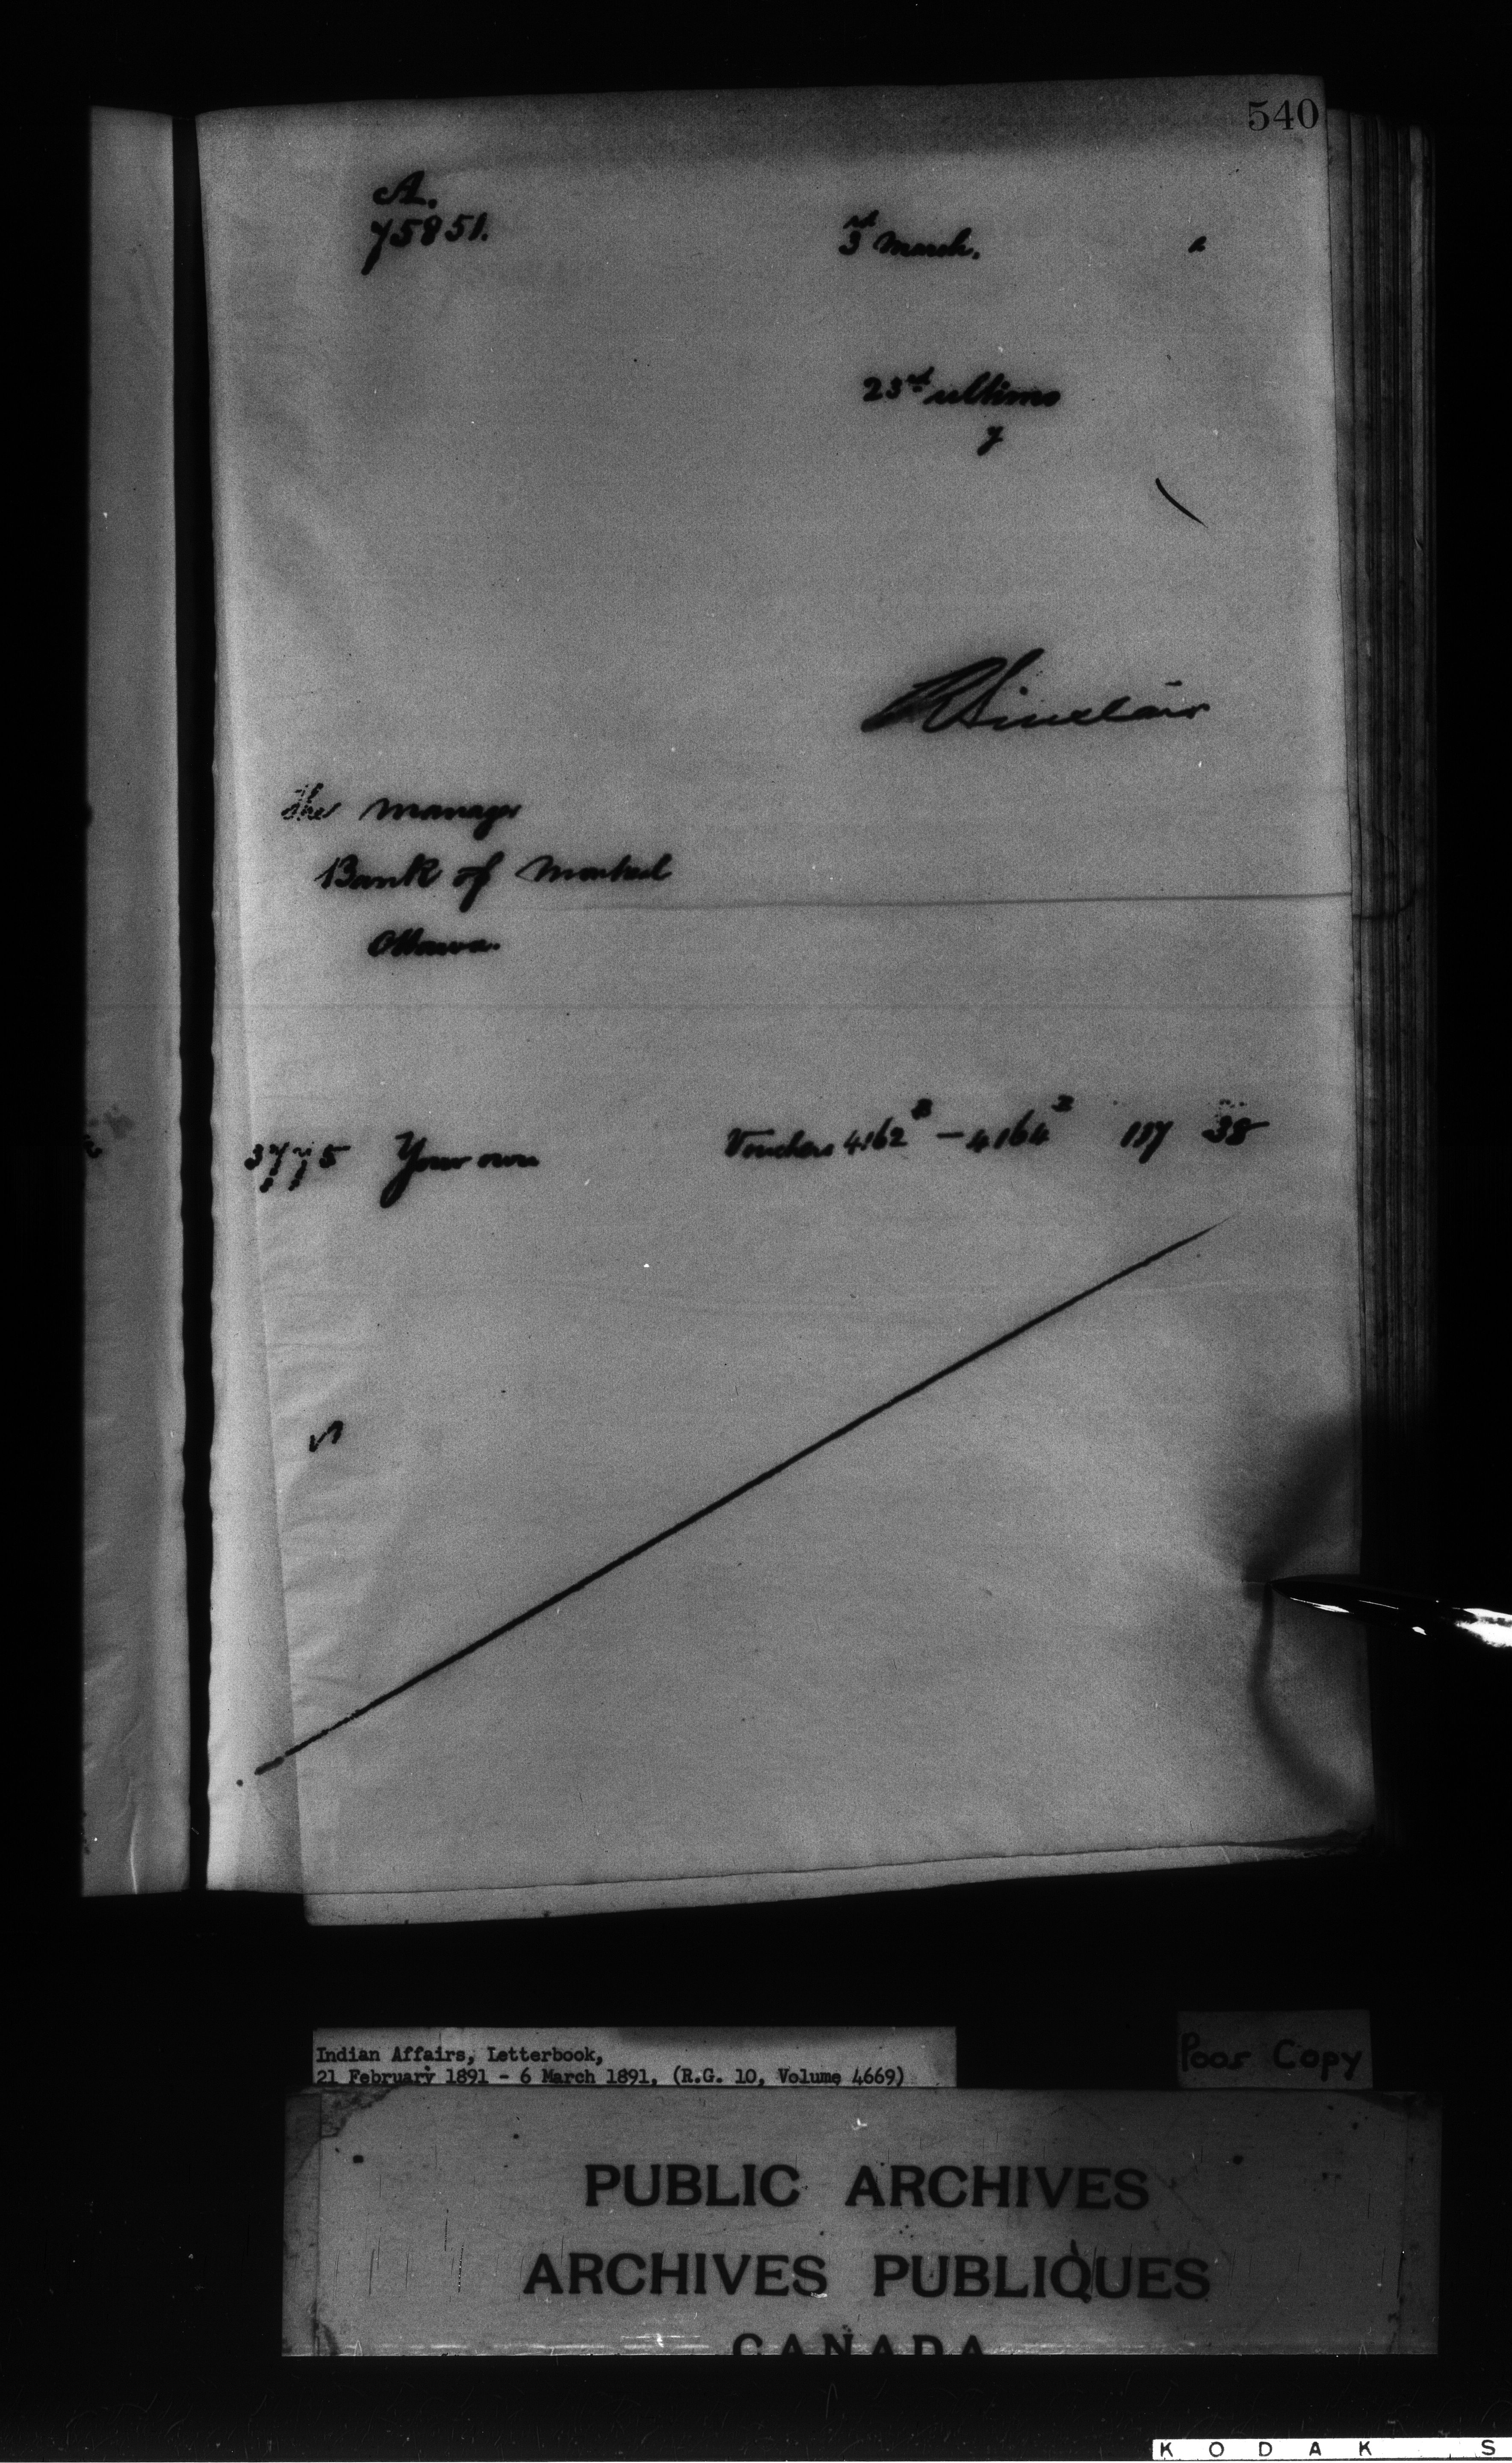 540
A.
75851.
3rd March.
23rd ultimo
y
R Sinclair
The Manager
Bank of Montreal
Ottawa.
3775 Your own Vouchers 4162 B - 4164 B 117 38
Indian Affairs, Letterbook,
21 February 1891 - 6 March 1891, (R.G. 10, Volume 4669)
Poor Copy
PUBLIC ARCHIVES
ARCHIVES PUBLIQUES
CANADA
KODAK S